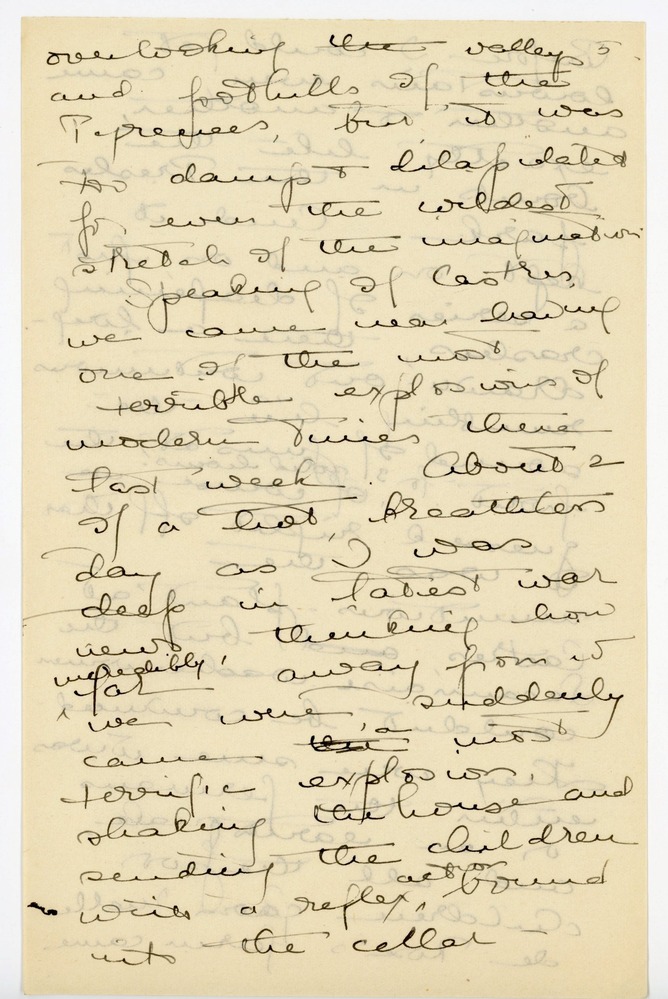 overlooking the valleys 5
and foothills of the
Pyrenees, but it was
too damp & dilapidated
for even the wildest
stretch of the imagination
Speaking of Castres,
we came near having
one of the most
terrible explosions of
modern times there
last week. About 2
of a hot, breathless
day as I was
deep in latest war
news thinking how
incredibly
far away from it
we were, suddenly
came a most
terrific explosion,
shaking the house and
sending the children
with a reflex action bound
into the cellar